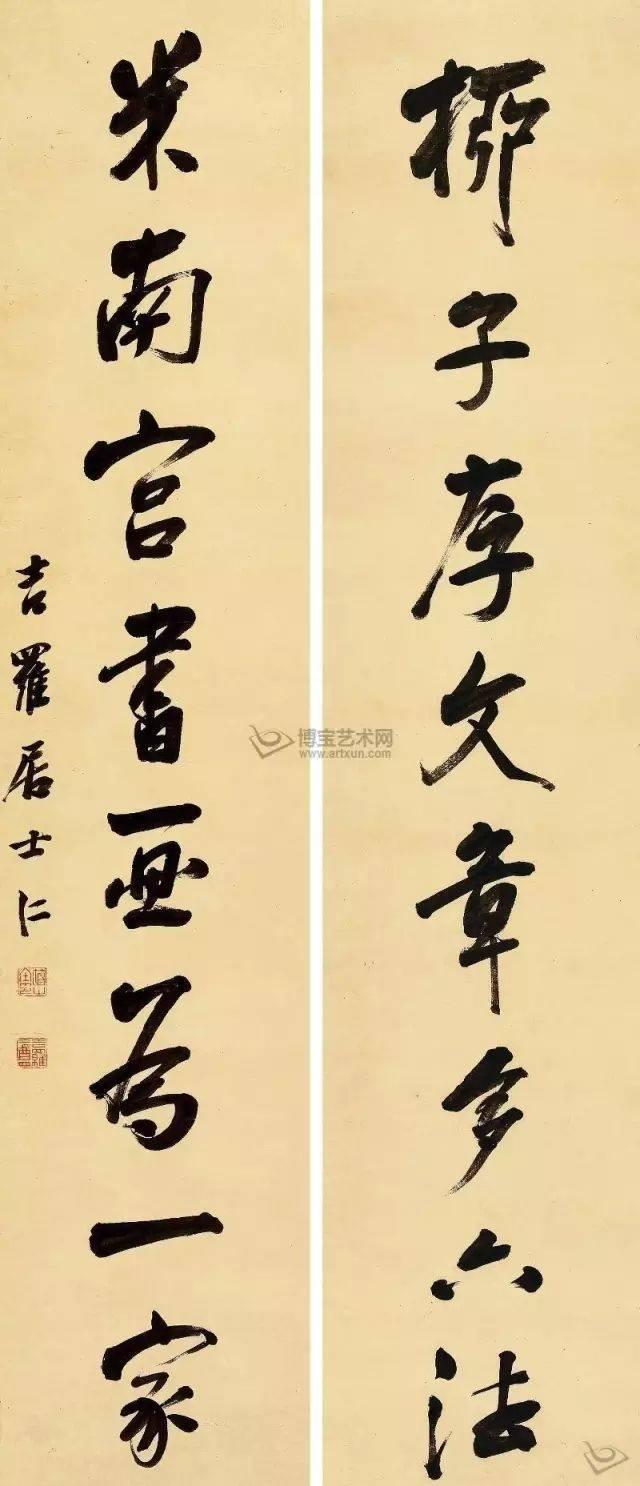 柳子厚文章多六法
米南宮書畫為一家
吉羅居士仁
博宝艺术网
www.artxun.com